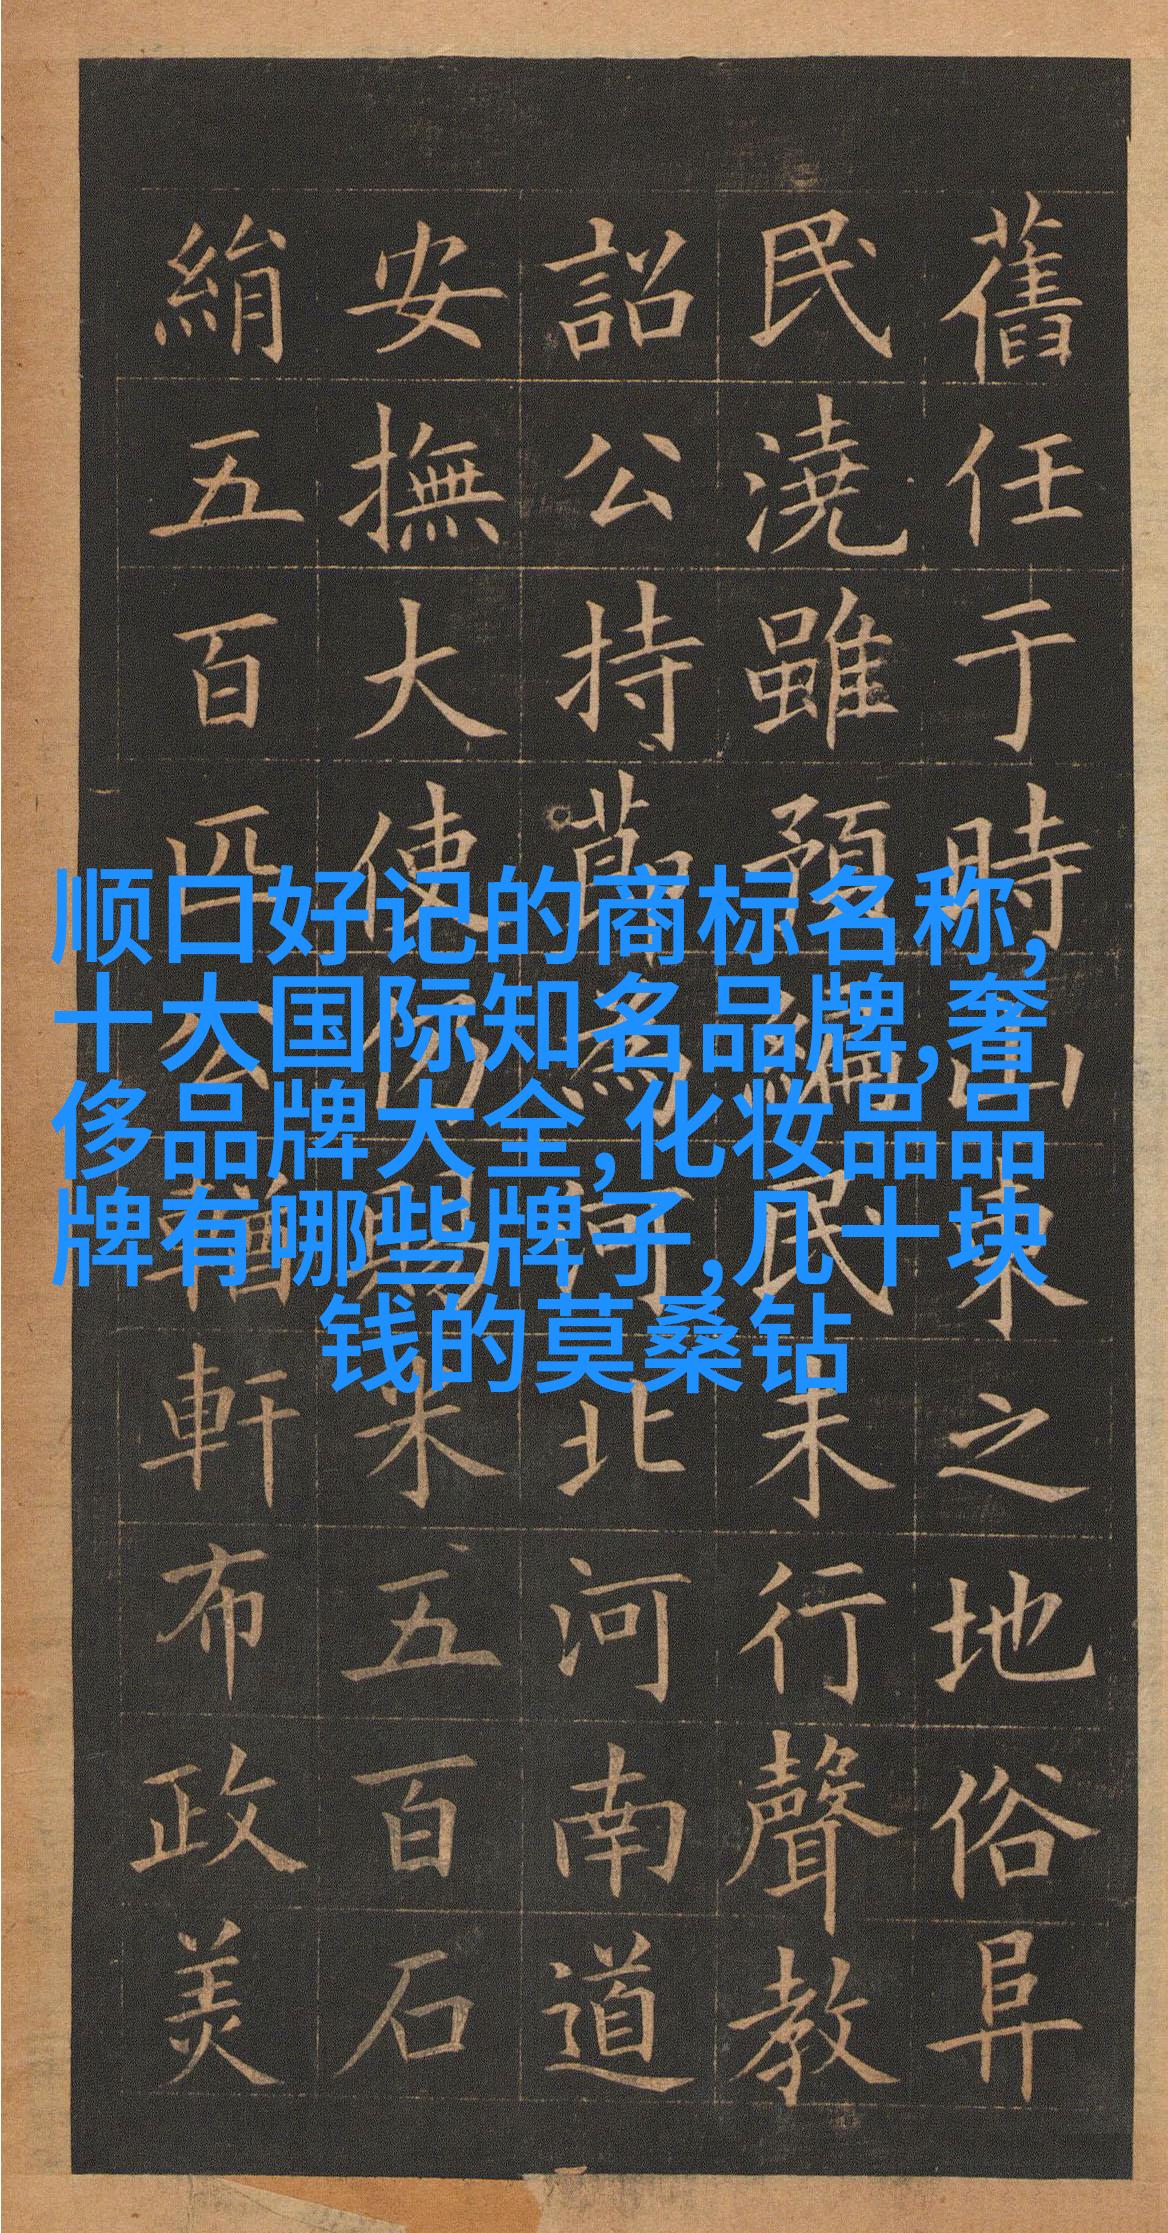 舊任于時山東之地俗阜
民澆雖預編民未行聲教
詔公持節為河北河南道
安撫大使仍賜米五百石
絹五百匹公輶軒布政美
顺口好记的商标名称,
十大国际知名品牌,奢
侈品牌大全,化妆品品
牌有哪些牌子,几十块
钱的莫桑钻